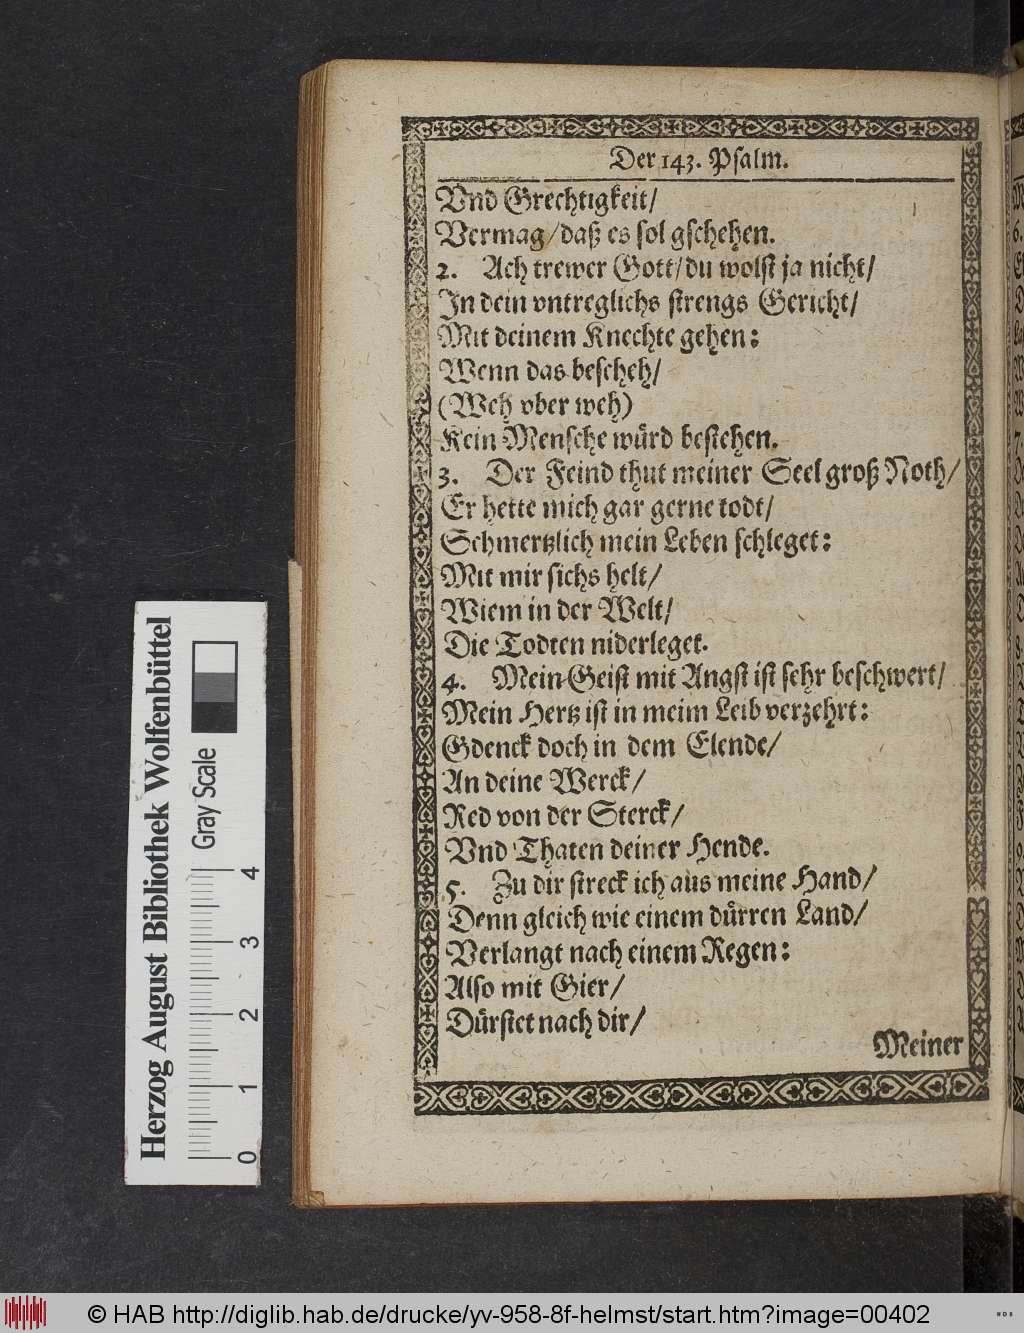 Der 143. Psalm.
Vnd Grechtigkeit/
Vermag/daß es sol gschehen.
2. Ach trewer Gott/du wolst ja nicht/
In dein vntreglichs strengs Gericht/
Mit deinem Knechte gehen:
Wenn das bescheh/
(Weh vber weh)
Kein Mensche würd bestehen.
3. Der Feind thut meiner Seel groß Noth/
Er hette mich gar gerne todt/
Schmertzlich mein Leben schleget:
Mit mir sichs helt/
Wiem in der Welt/
Die Todten niderleget.
4. Mein Geist mit Angst ist sehr beschwert/
Mein Hertz ist in meim Leib verzehrt:
Gdenck doch in dem Elende/
An deine Werck/
Red von der Sterck/
Vnd Thaten deiner Hende.
5. Zu dir streck ich aus meine Hand/
Denn gleich wie einem dürren Land/
Verlangt nach einem Regen:
Also mit Gier/
Dürstet nach dir/
Meiner
Herzog August Bibliothek Wolfenbüttel
Gray Scale
0 1 2 3 4
© HAB http://diglib.hab.de/drucke/yv-958-8f-helmst/start.htm?image=00402